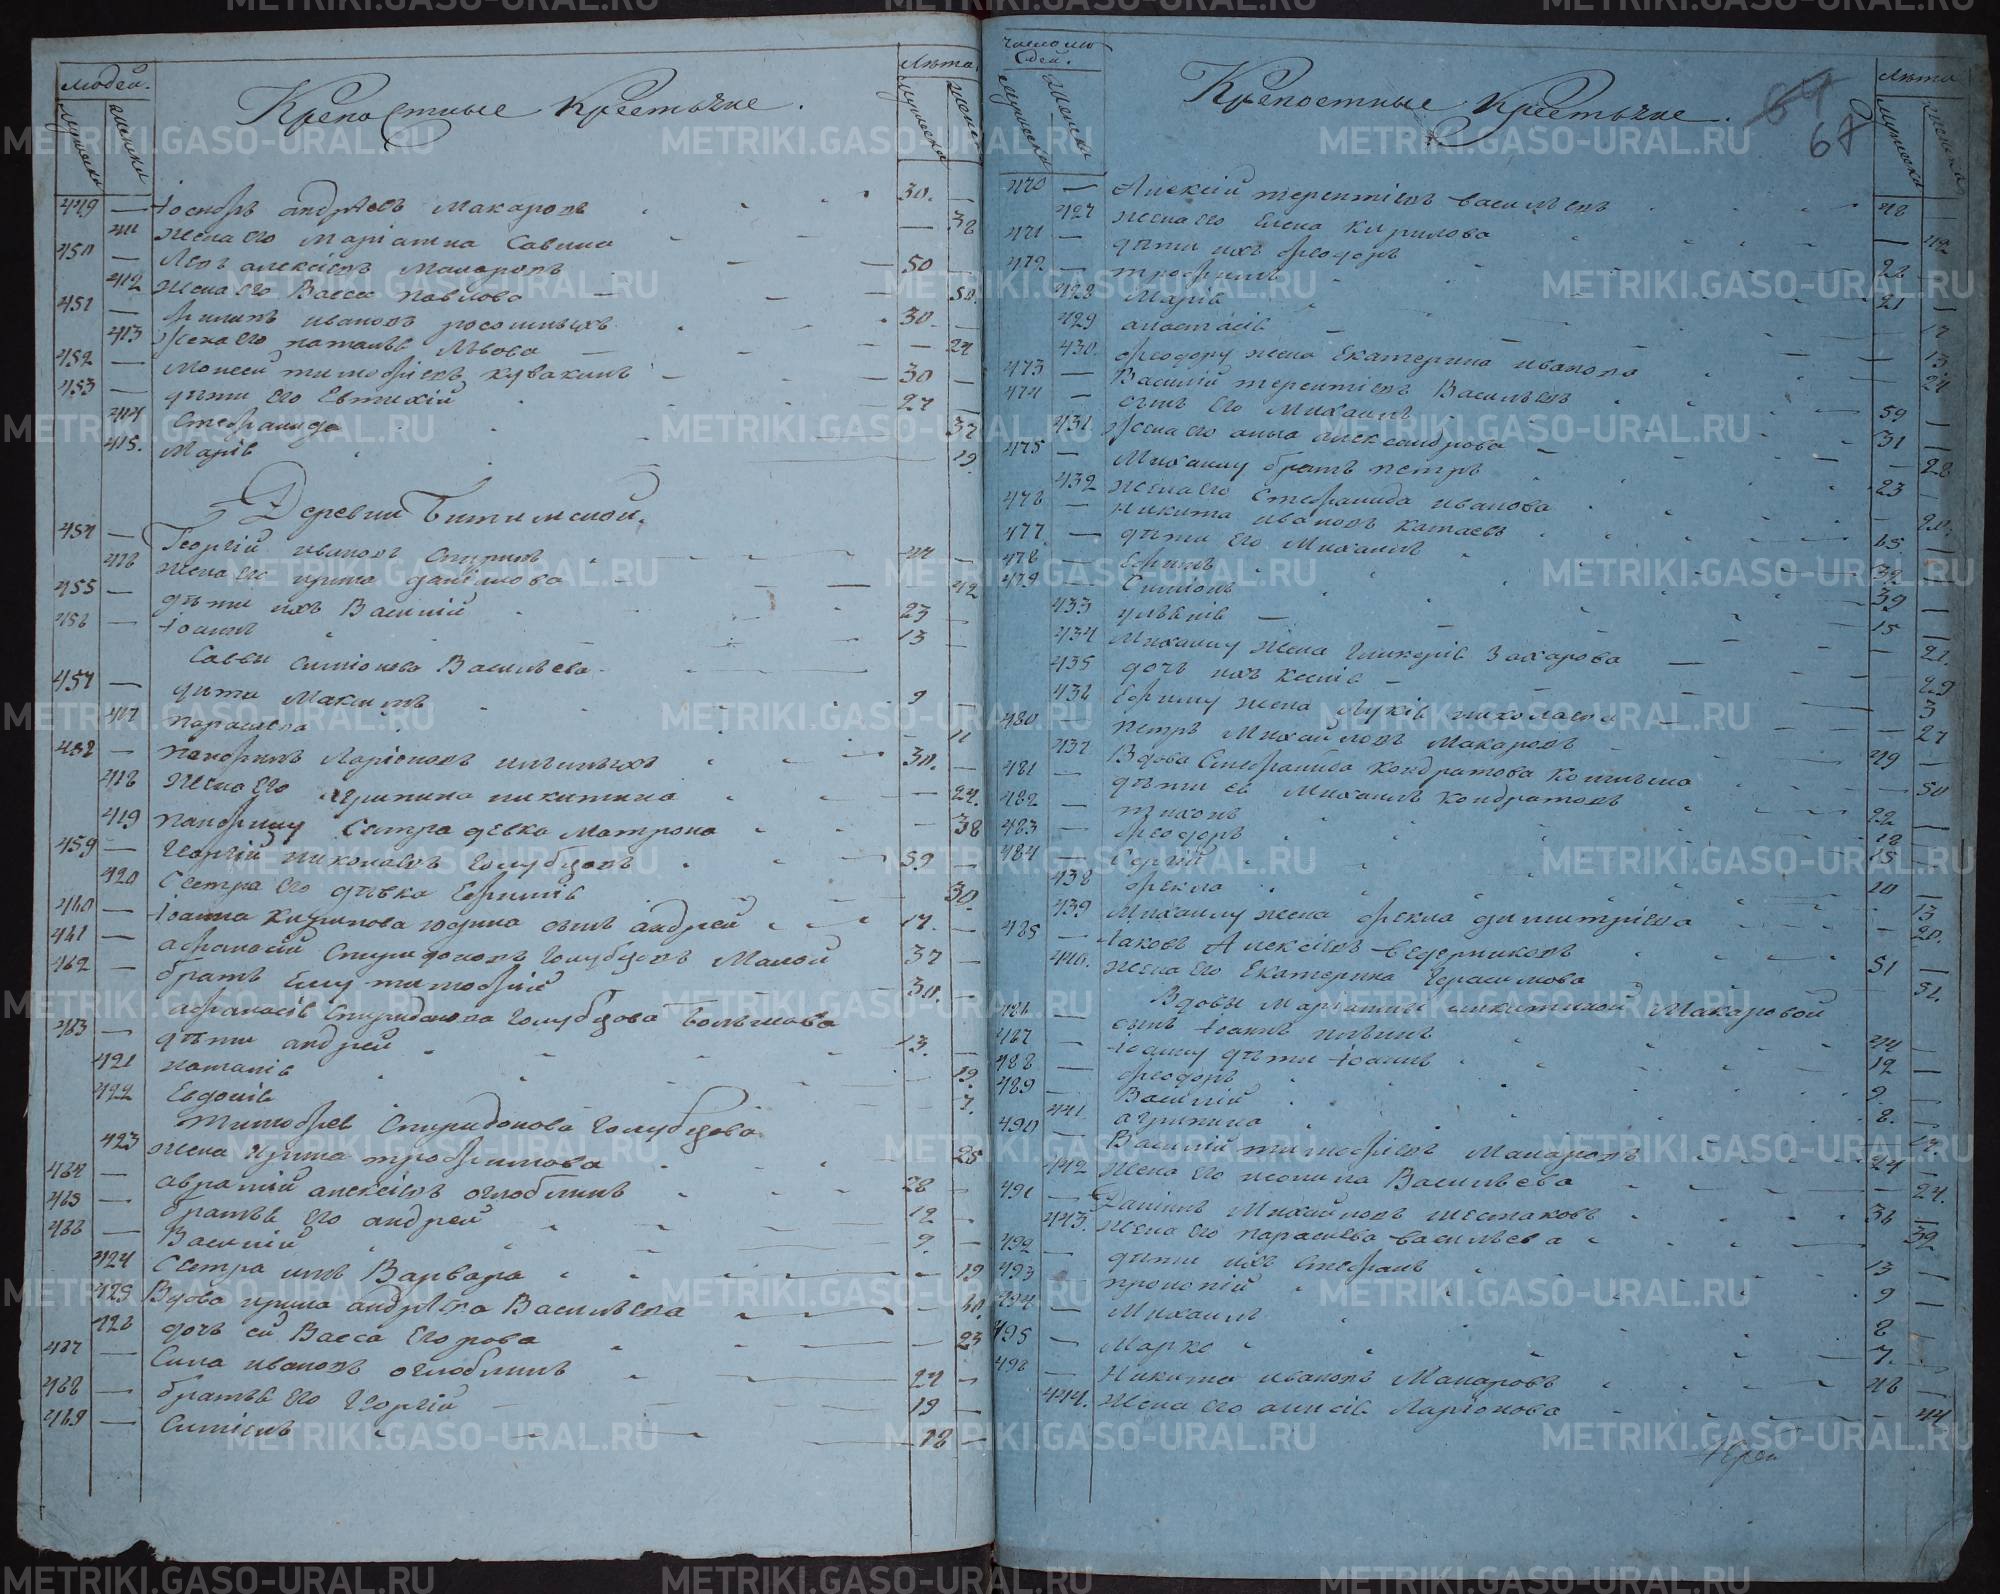 людей.
мужеска
женски
Крепостные крестьяне.
Лѣта
мужеска
женска
449 — Іосифъ андрѣевъ Макаровъ 30. —
411 жена его Маріамна Савина — 38
450 — Левъ алексіевъ Макаровъ — 50
412 жена его Васса павлова — 50.
451 — Филипъ ивановъ росошныхъ 30. —
413 Жена его наталья Львова — 24
452 — Моисей тимофѣевъ кувакинъ — 30 —
453 — дѣти его Евтихій 27 —
414 Стефанида 37
415. Марія 19.
Деревни Битимской.
454 — Георгій ивановъ Спиринъ 44 —
416 жена его ирина данилова — 42
455 — дѣти ихъ Василій 23 —
456 — Іоаннъ 13 —
Саввы симіонова Васильева
457 — дѣти Максимъ 9
417 парасковья 11
458 — панфилъ Ларіоновъ ильиныхъ 30. —
418 жена его агрипина никитина — 24.
419 панфилу Сестра девка Матрона — 38
459 — Георгій николаевъ Голубцовъ 59. —
420 Сестра его дѣвка Ефимія 30.
460 — Іоанна кирилова юдина сынъ андрей 17. —
461 — афанасій Спиридоновъ Голубцовъ Малой 37 —
462 — братъ ему тимофѣй 30. —
афанасія Спиридонова Голубцова Большова
463 — дѣти андрей 13. —
421 наталія 19.
422 Евдокія 7.
Тимофѣя Спиридонова Голубцова
423 жена ирина трофимова 25
464 — аврамій алексіевъ оглоблинъ 28 —
465 — братья его андрей 12 —
466 — Василій 9. —
424 Сестра имъ Варвара — 19
425 Вдова ирина андрѣева Васильева — 60.
426 дочь ей Васса Егорова — 23
467 — Сила ивановъ оглоблинъ 24 —
468 — братья его Георгій 19 —
469 — Симіонъ 18 —
число лю
дей.
мужеска
женска
Крепостные крестьяне.
64
67
Лѣта
мужеска
женска
470 — Алексій терентіевъ васильевъ 48
427 жена его Елена Кирилова — 42
471 — дѣти ихъ Феодоръ 22
472 — трофимъ 21
428 Марія 17
429 анастасія — 13.
430. Феодору жена Екатерина иванова — 24
473 — Василій терентіевъ Васильевъ 59 —
474 — сынъ его Михаилъ 31 —
431. Жена его анна александрова — 28
475 — Михаилу братъ петръ 23 —
432 жена его Стефанида иванова — 20.
476 — никита ивановъ катаевъ 65 —
477. — дѣти его Михаилъ 32 —
478 — Ефимъ 39 —
479 — Симіонъ 15 —
433 ульянія — 21.
434 Михаилу жена Гликерія Захарова — 29
435 дочь ихъ ксенія — 3
436 Ефиму жена Лукія николаева — 27
480 — петръ Михайловъ Макаровъ 49 —
437 Вдова Стефанида Кондратова Копытина — 50
481 — дѣти ея Михаилъ Кондратовъ 22 —
482 — тихонъ 18
483 — Феодоръ 15 —
484 — Сергій 10 —
438 Фекла 13
439 Михаилу жена Фекла димитріева 20.
485 — Іаковъ Алексіевъ ведерниковъ 51 —
440. жена его Екатерина Герасимова — 51.
Вдовы Маріамны никитиной Макаровой
486 — сынъ Іоаннъ ильинъ 44 —
487 — Іоанну дѣти Іоаннъ 12 —
488 — Феодоръ 9.
489 — Василій 8. —
441. агрипина 17
490 — Василій тимофѣевъ Макаровъ 24 —
442 жена его неонила Васильева — 24.
491 — Даніилъ Михайловъ шестаковъ 36 —
443. жена его парасковья васильева — 32
492 — дѣти ихъ Стефанъ 13 —
493 — прокопій 9 —
494 — Михаилъ 8
495 — Марко 7. —
496 — Никита ивановъ Макаровъ 46 —
444. жена его анисія Ларіонова — 44
Іерей